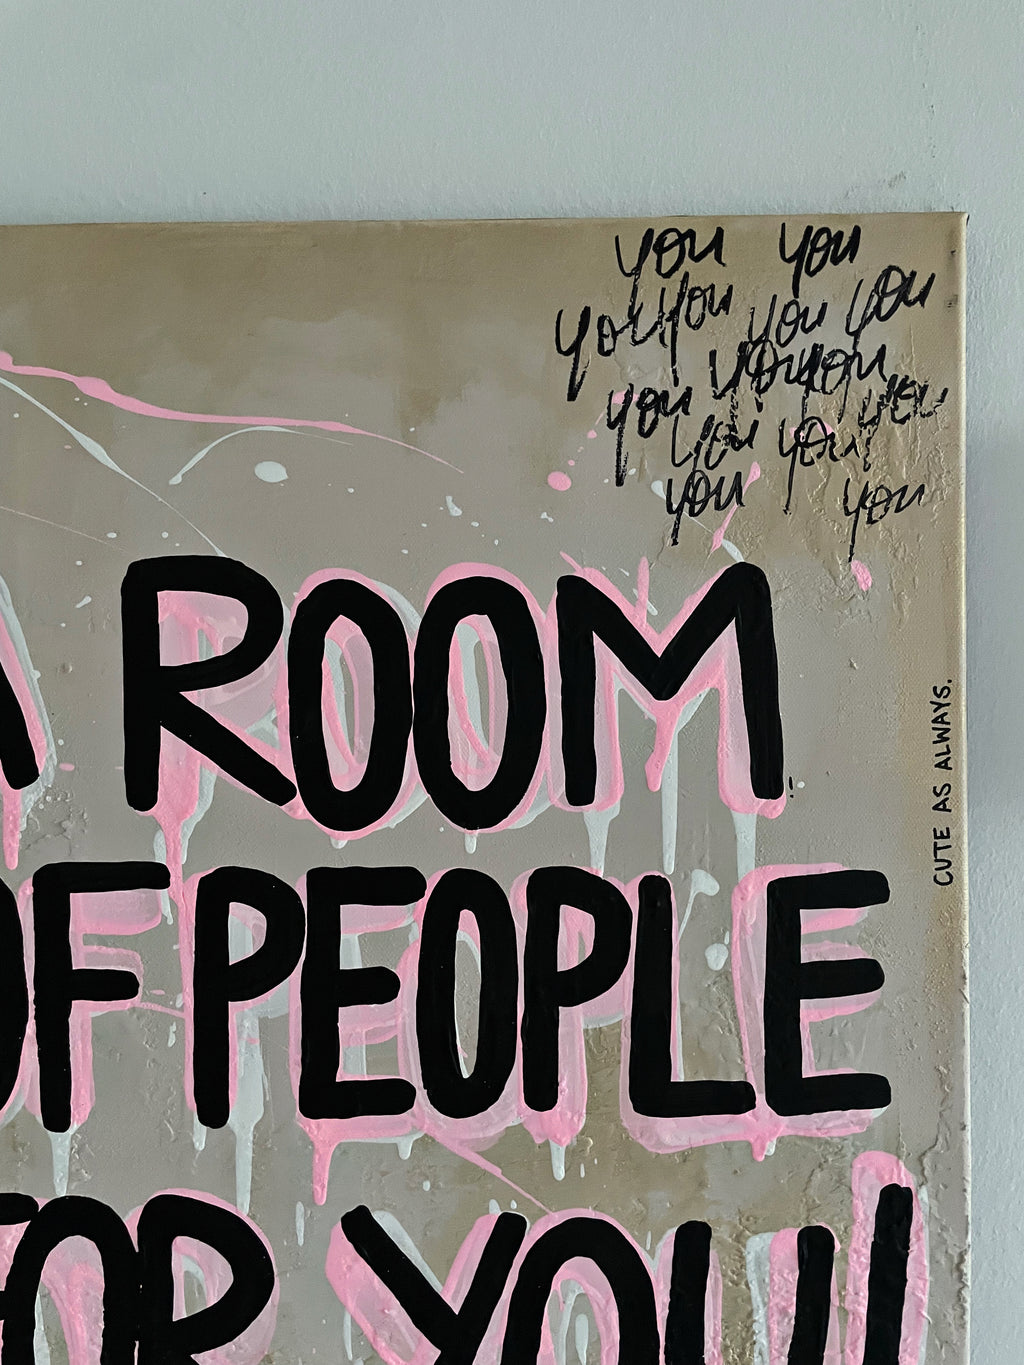 you you
you you you you
you you
you you
you you
you you
A ROOM
OF PEOPLE
FOR YOU!
CUTE AS ALWAYS.